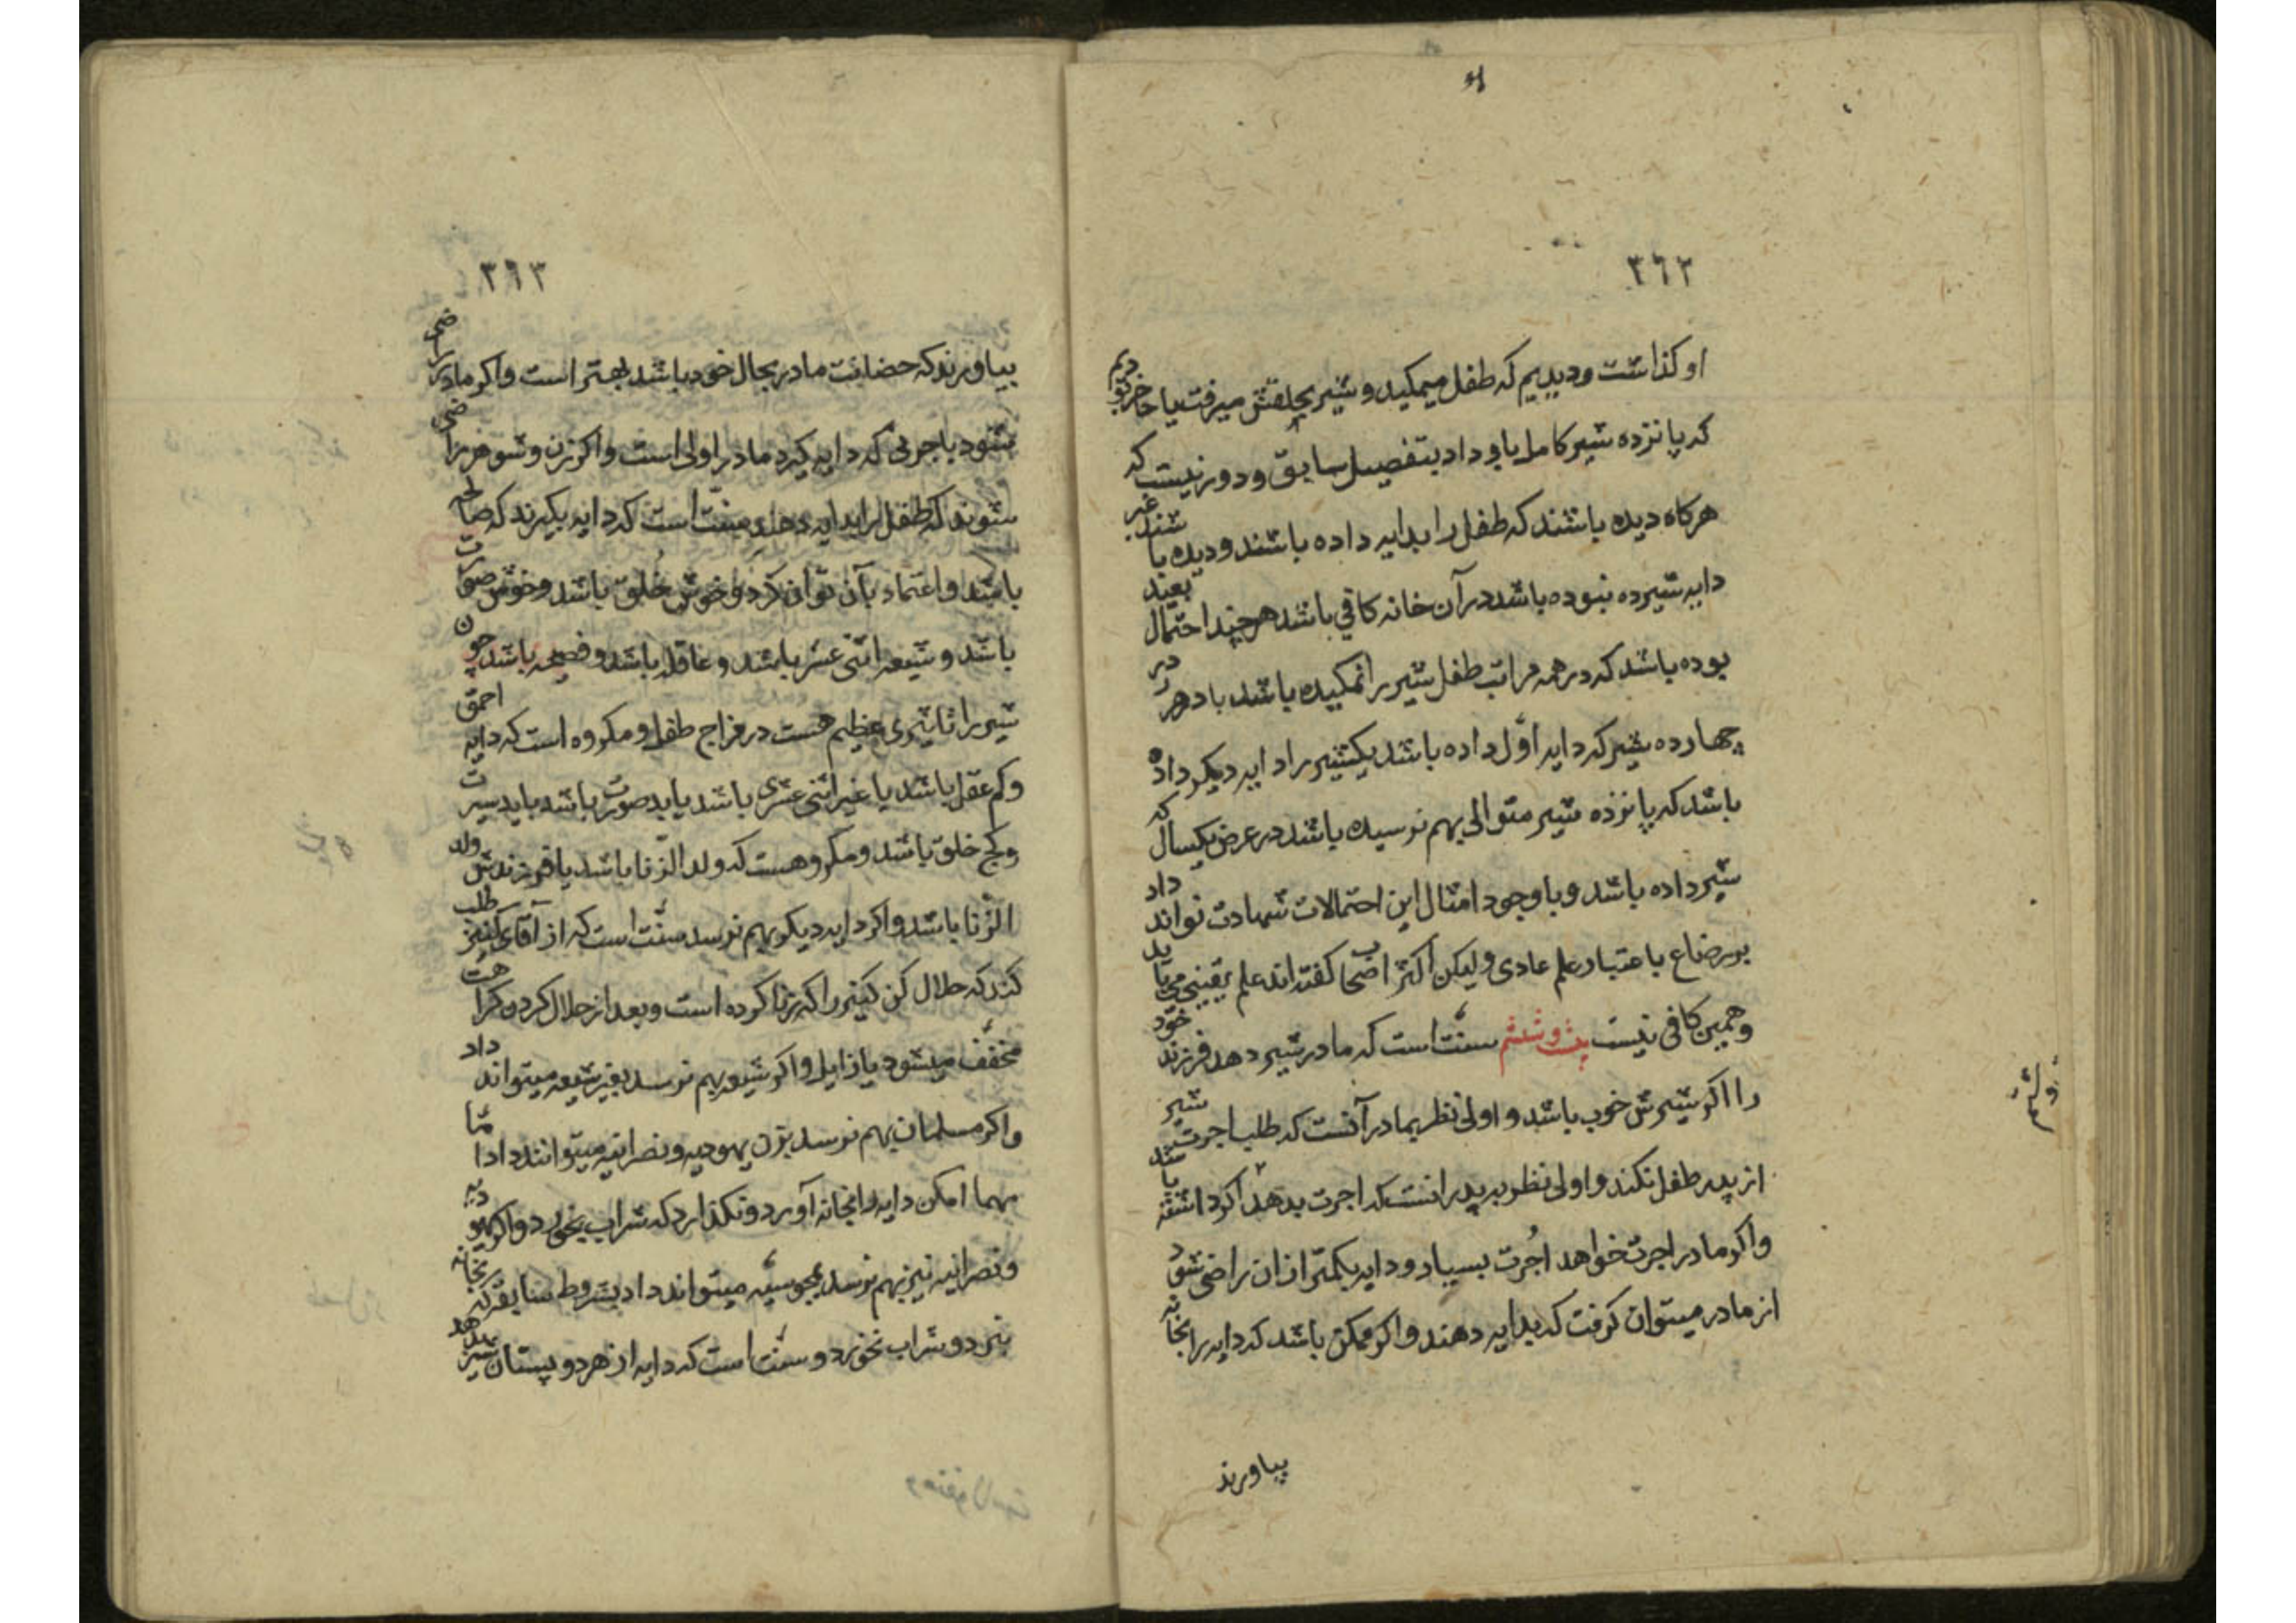 ٣٦٢
او كذاشت وديديم كه طفل ميمكيد و شير بحلقش ميرفت يا حاضر بوديم
كه پانزده شير كامل باو داد بتفصيل سابق و دور نيست كه
هركاه ديده باشند كه طفل را بدايه داده باشند و ديده باشند غير
دايه شيرده نبوده باشد در آن خانه كافي باشد هرچند احتمال بعيد
بوده باشد كه در همه مراتب طفل شير را نمكيده باشد يا در هر
چهارده شير كه دايه اوّل داده باشد يكشير را دايه ديكر داده
باشد كه پانزده شير متوالى بهم نرسيده باشد در عرض يكسال كه
شير داده باشد و با وجود امثال اين احتمالات شهادت تواند داد
بر رضاع باعتبار علم عادى وليكن اكثر اصحاب كفته اند علم يقينى مى بايد
و همين كافى نيست بيست و ششم سنّت است كه مادر شير دهد فرزند خود
را اكر شيرش خوب باشد و اولى نظر بمادر آنست كه طلب اجرت شير
از پدر طفل نكند و اولى نظر بپدر انست كه اجرت بدهد اكر داشته باشد
و اكر مادر اجرت خواهد اُجرت بسيار و دايه بكمتر از ان راضى شود
از مادر ميتوان كرفت كه بدايه دهند و اكر ممكن باشد كه دايه را بخانه
بياورند
٣٦٣
بياورند كه حضانت مادر بحال خود باشد بهتر است و اكر مادر راضى
شود باجرتى كه دايه كيرد مادر اولى است و اكر زن و شوهر راضى
شوند كه طفل را بدايه دهند سنّت است كه دايه بكيرند كه صالحه
باشد و اعتماد بآن توان كرد و خوش خُلق باشد و خوش صورت
باشد و شيعه اثنى عشر باشد و عاقله باشد و فصيحه باشد چون
شير را تاثيرى عظيم هست در مزاج طفل و مكروه است كه دايه احمق
و كم عقل باشد يا غير اثنى عشرى باشد يا بد صورت باشد يا بد سيرت
و كج خلق باشد و مكروهست كه ولد الزّنا باشد يا فرزندش ولد
الزّنا باشد و اكر دايه ديكر بهم نرسد سنّت است كه از آقاى كنيز طلب
كند كه حلال كن كنيز را كه زنا كرده است و بعد از حلال كردن كراهت
مخفّف ميشود يا زايل و اكر شيعه بهم نرسد بغير شيعه ميتواند داد
و اكر مسلمان بهم نرسد بزن يهوديه و نصرانيه ميتوانند داد امّا
مهما امكن دايه را بخانه آورد و نكذارد كه شراب بخورد و اكر يهوديه
و نصرانيه نيز بهم نرسد بمجوسيّه ميتواند داد بشروط سابقه كه بخانه
نبرد و شراب نخورد و سنّت است كه دايه از هر دو پستان شير بدهد